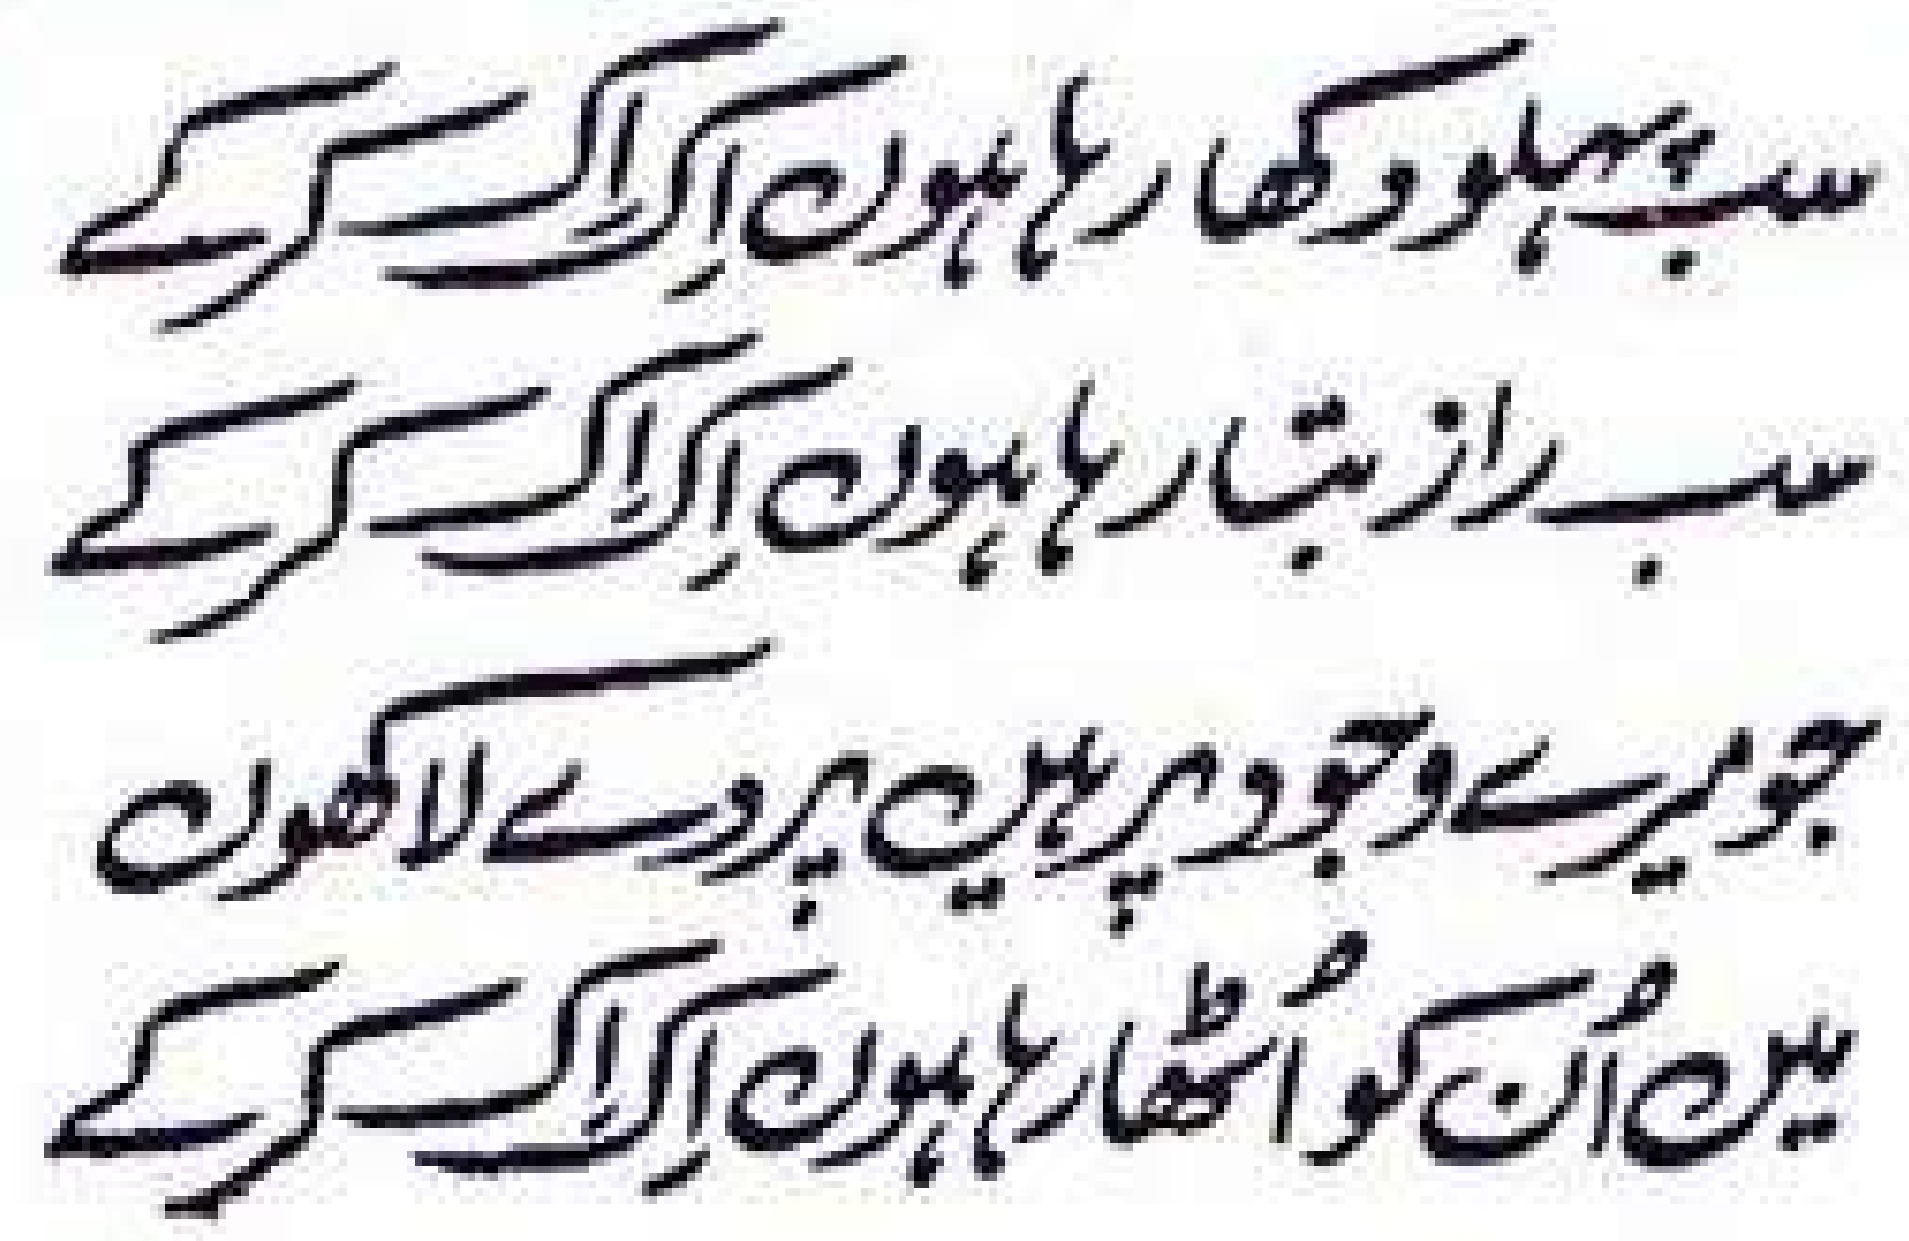 سب پہلو دکھا رہا ہوں اِک اِک کر کے
سب راز بتا رہا ہوں اِک اِک کر کے
جو میرے وجود پر ہیں پردے لاکھوں
میں اُن کو اُٹھا رہا ہوں اِک اِک کر کے